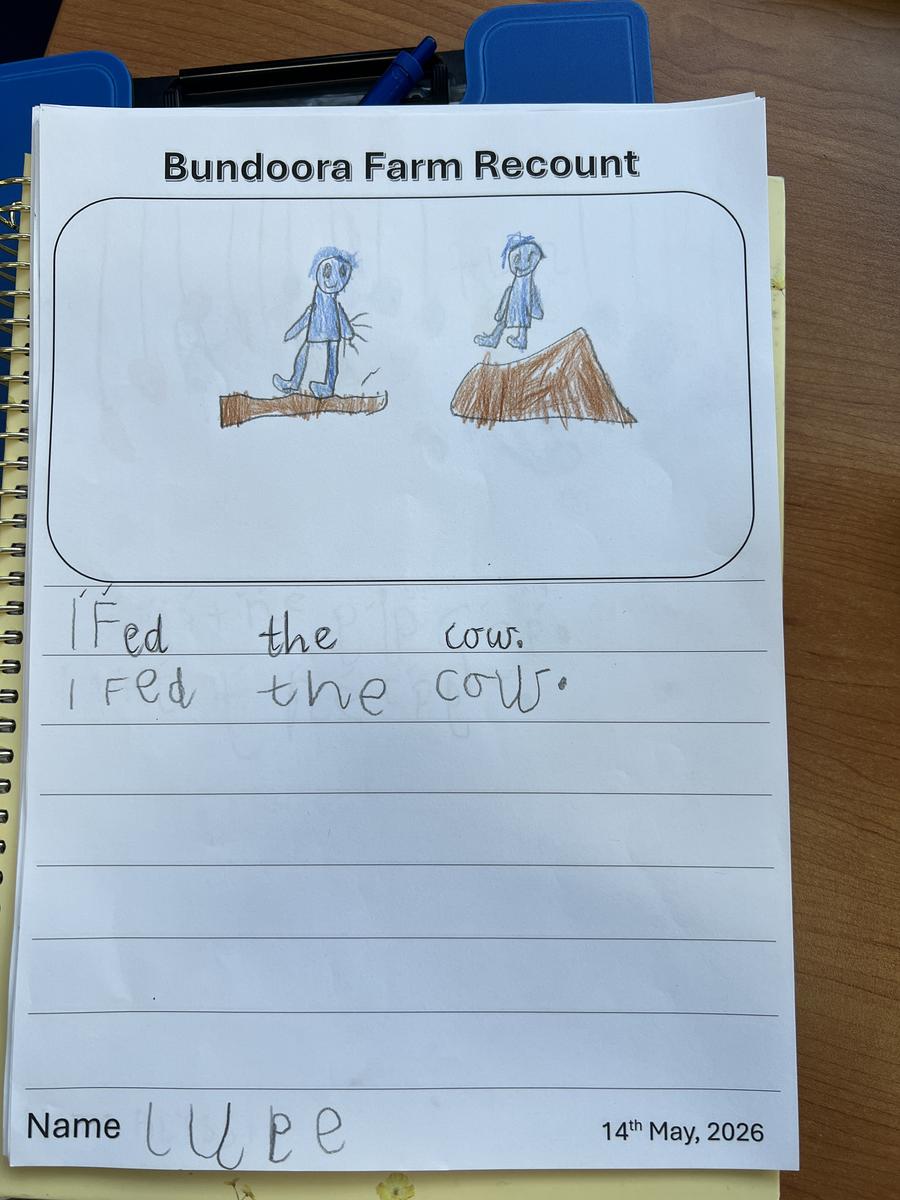 Bundoora Farm Recount
I Fed the cow.
I Fed the cow.
Name
14th May, 2026